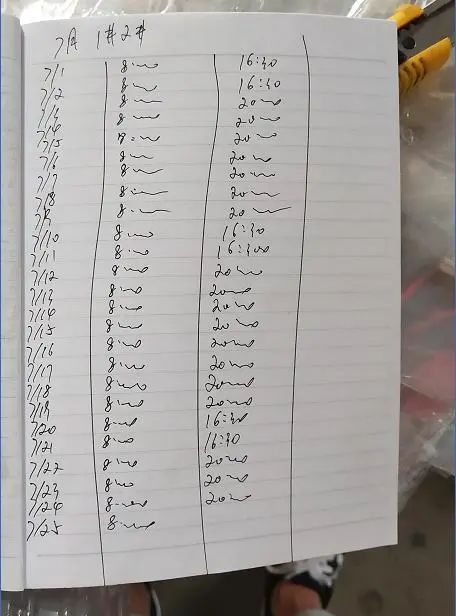 7月 1# 2#
7/1 8:00 16:30
7/2 8:00 16:30
7/3 8:00 20:00
7/4 8:00 20:00
7/5 8:00 20:00
7/6 8:00 20:00
7/7 8:00 20:00
7/8 8:00 20:00
7/9 8:00 20:00
7/10 8:00 16:30
7/11 8:00 16:300
7/12 8:00 20:00
7/13 8:00 20:00
7/14 8:00 20:00
7/15 8:00 20:00
7/16 8:00 20:00
7/17 8:00 20:00
7/18 8:00 20:00
7/19 8:00 20:00
7/20 8:00 16:30
7/21 8:00 16:30
7/22 8:00 20:00
7/23 8:00 20:00
7/24 8:00 20:00
7/25 8:00